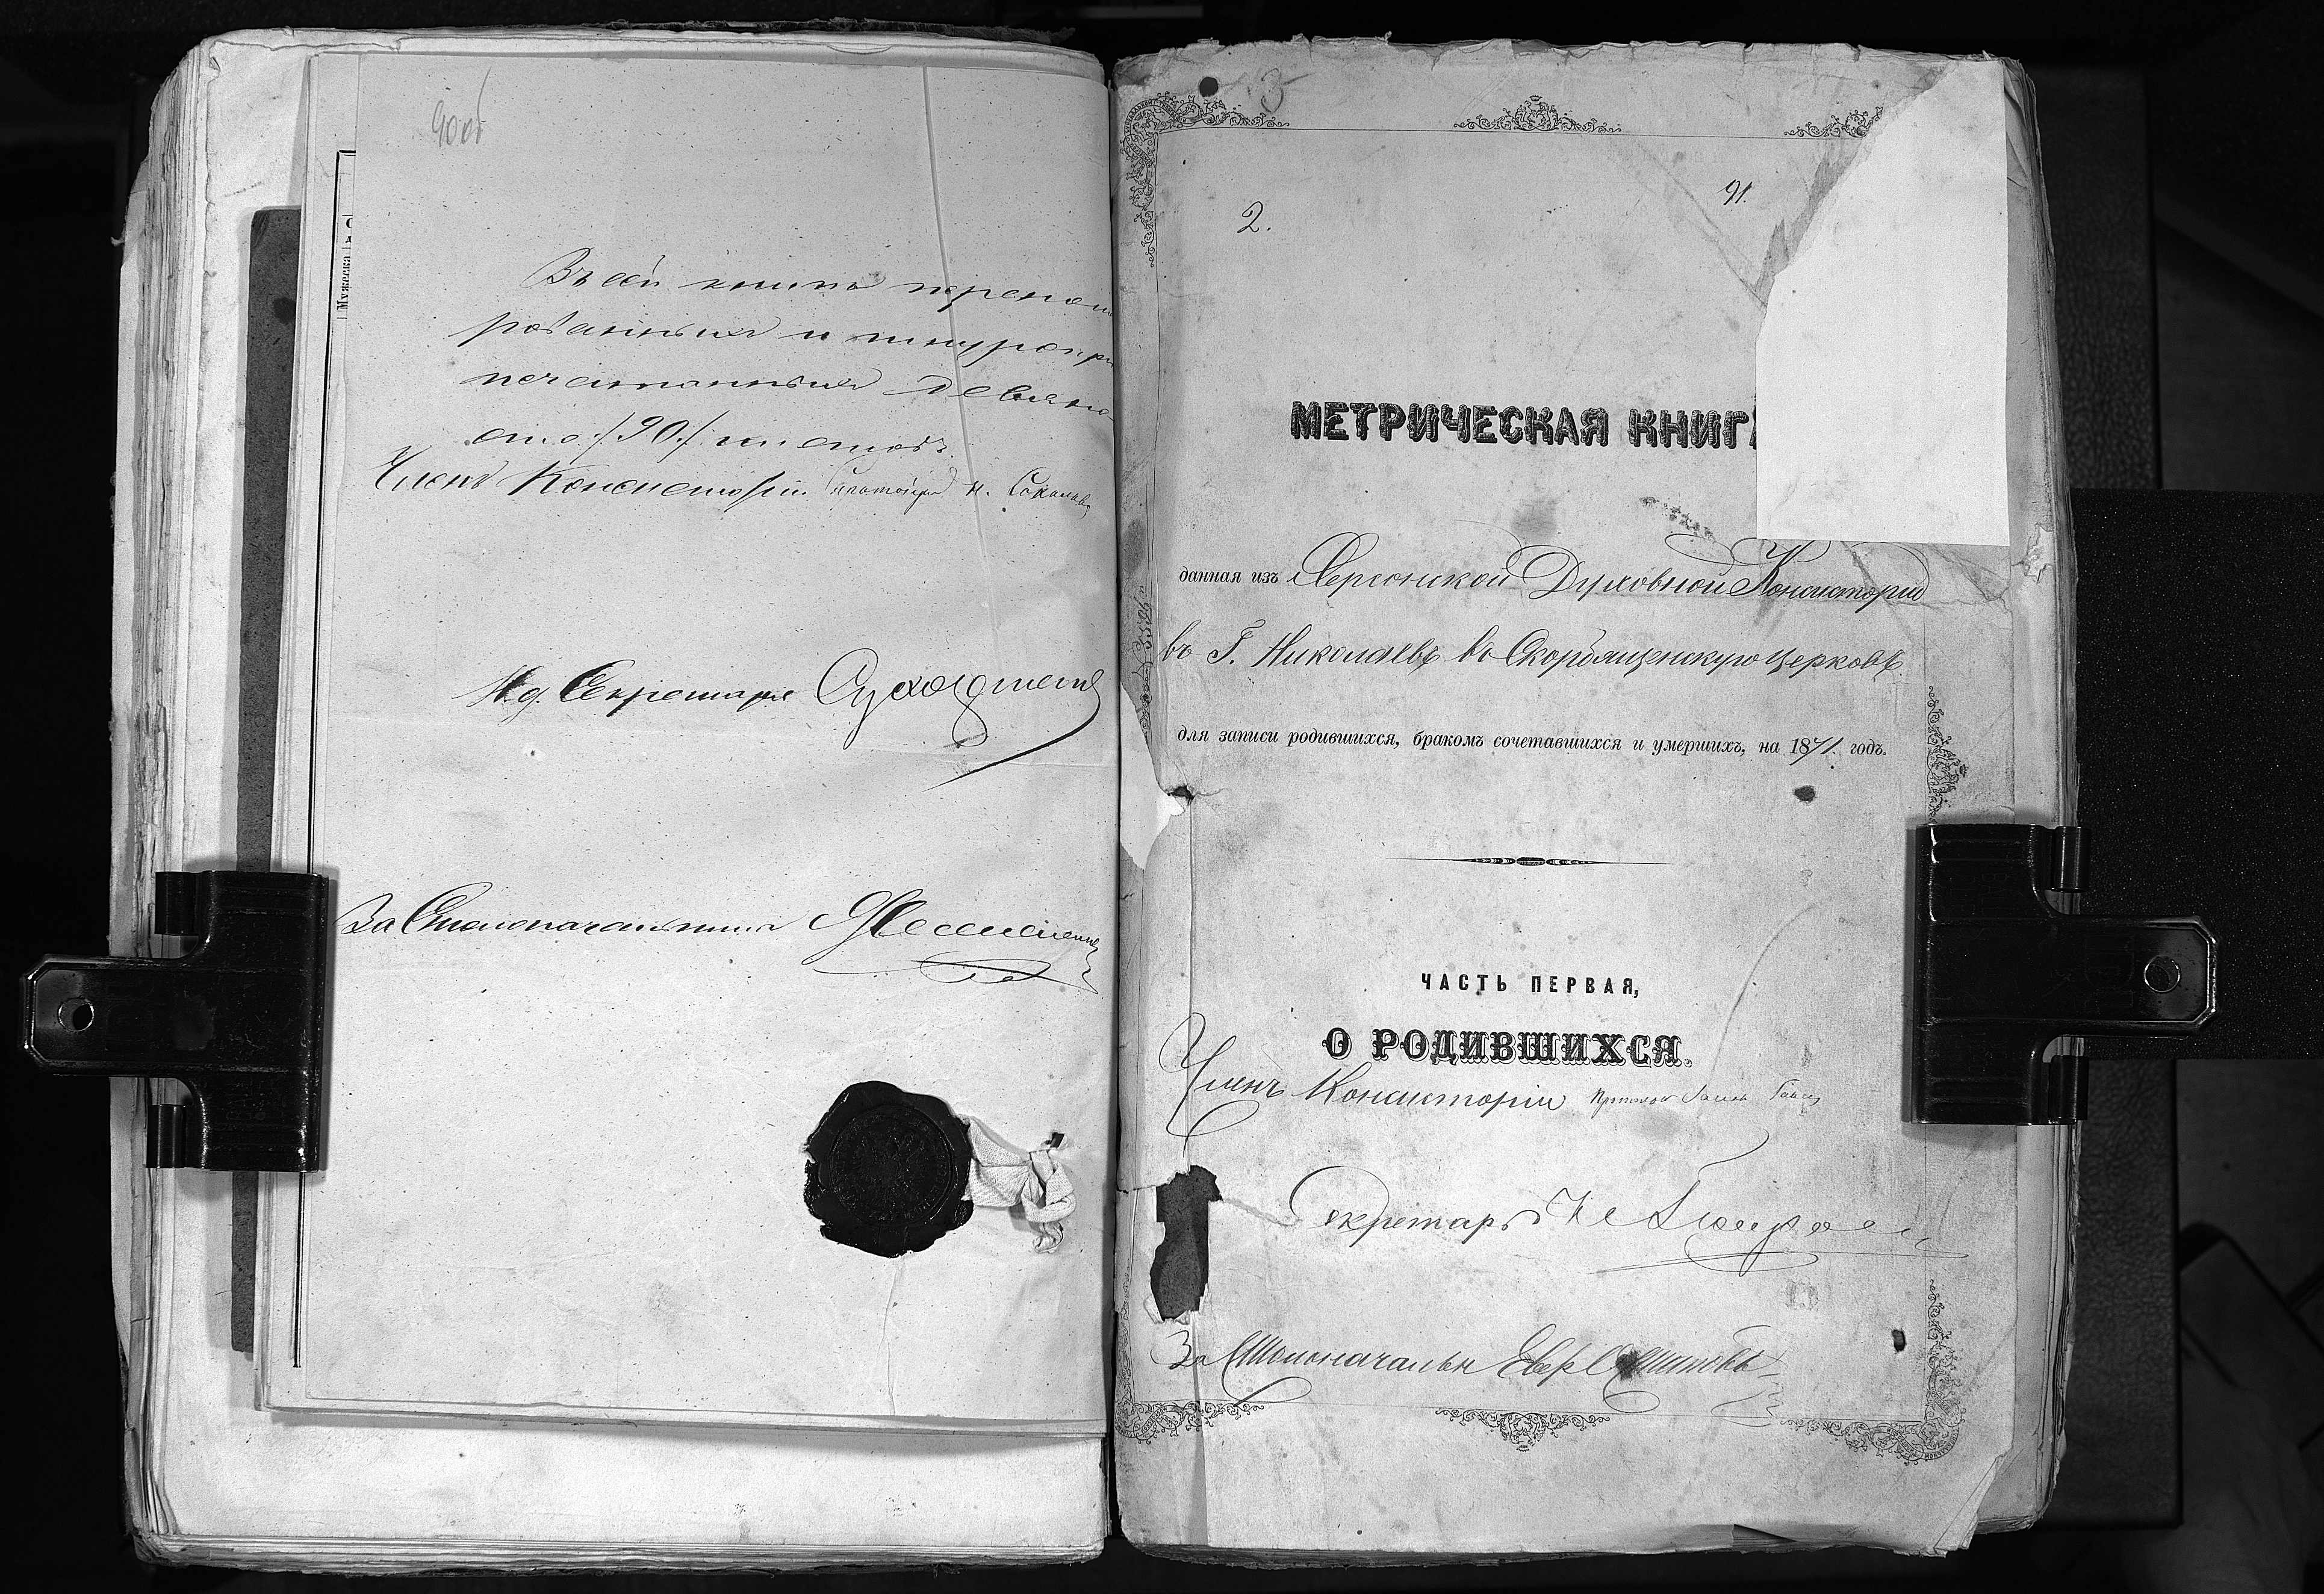 90об
Мужеска
Въ сей книгѣ переноме
рованныхъ и шнуропри
печатанныхъ девяно
сто /90/ листовъ
Членъ Консисторіи Протоіерей Н. Соколовъ
И.д. Секретаря
За Столоначальника
3
91.
2.
МЕТРИЧЕСКАЯ КНИГ
данная изъ Херсонской Духовной Консисторіи
въ Г. Николаевъ въ Скорбященскую Церковь
для записи родившихся, бракомъ сочетавшихся и умершихъ, на 1871. годъ.
ЧАСТЬ ПЕРВАЯ,
О РОДИВШИХСЯ.
Членъ Консисторіи Протоіерей
Секретарь
За Столоначальн